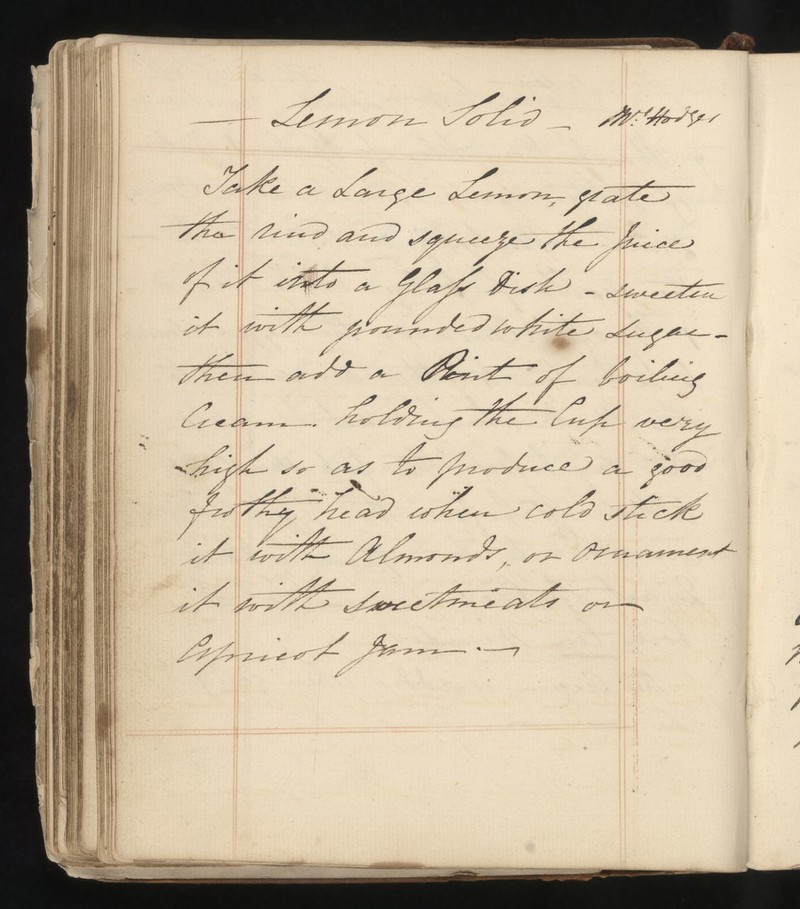 — Lemon Solid — Mrs Hodges
Take a Large Lemon, grate
the rind and squeeze the Juice
of it into a Glass Dish - sweeten
it with pounded white sugar -
then add a Pint of boiling
Cream. holding the Cup very
high so as to produce a good
frothy head when cold stick
it with Almonds, or Ornament
it with sweetmeats or
Apricot Jam. —